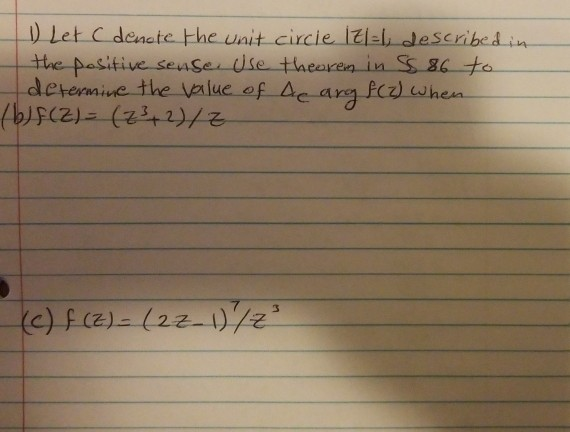 1) Let C denote the unit circle |z|=1, described in
the positive sense. Use theorem in § 86 to
determine the value of Δc arg f(z) when
(b) f(z) = (z³+2)/z
(c) f(z) = (2z-1)⁷/z³